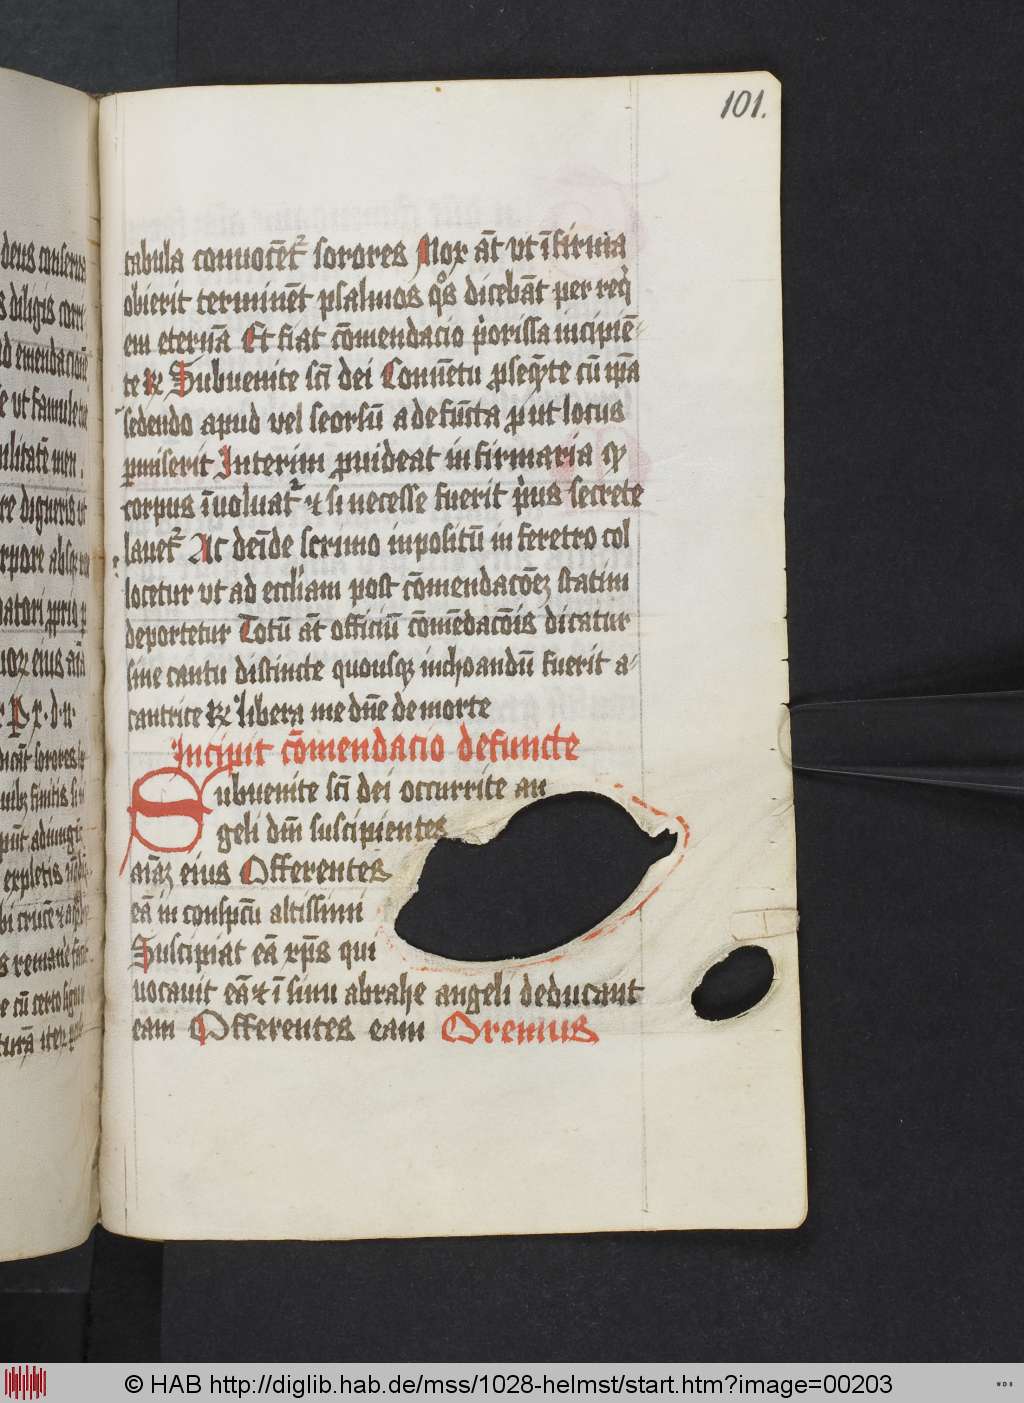 101.
tabula conuocēt᷑ sorores Nox āt vt īfirma
obierit terminēt psalmos qͦs dicebāt per req̇
em eternā Et fiat cōmendacio p̍orissa incipiē-
te R̷ Subuenite scī dei Conuētu ꝓseq̄nte cū ip̄a
sedendo apud vel seorsū a defūcta ꝓut locus
ꝑmiserit Interim ꝓuideat infirmaria qꝫ
corpus īuoluat᷑ ⁊ si necesse fuerit p̍us secrete
lauet᷑ Ac deīde scrinio inpositū in feretro col
locetur vt ad eccl̄iam post cōmendacōeꝫ statim
deportetur Totū āt officiū cōmēdacōis dicatur
sine cantu distincte quousqꝫ inchoandū fuerit a-
cantrice R̷ libera me dn̄e de morte
Incipit cōmendacio defuncte
Subuenite scī dei occurrite an
geli dn̄i suscipientes
aīaꝫ eius Offerentes
eā in conspc̄u altissimi
Suscipiat eā xp̄s qui
uocauit eā ⁊ ī sinu abrahe angeli deducant
eam Offerentes eam Oremus
deus conserua
s diligis corri
ad emendacionē
vt famule tue
re digneris vt
eius aīa
P x. d. n.
dicāt sorores
finitis
expletis
© HAB http://diglib.hab.de/mss/1028-helmst/start.htm?image=00203